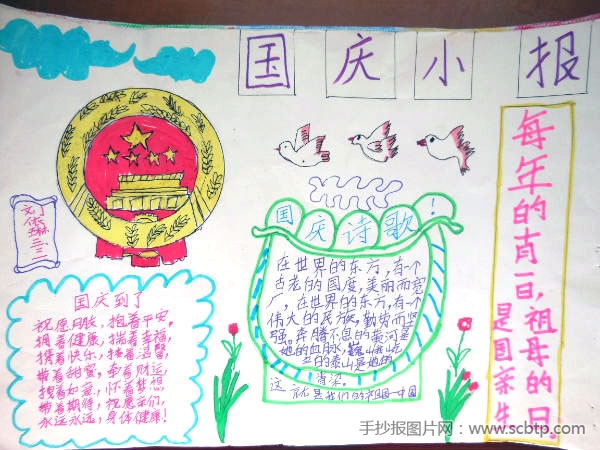 国庆小报
每年的十月一日,祖母的日!
是国亲生
三.二
国庆诗歌!
在世界的东方,有个
古老的国度,美丽而宽
广,在世界的东方,有个
伟大的民族,勤劳而坚
强。奔腾不息的黄河是
她的血脉,巍峨屹
立的泰山是她的
脊梁。
这就是我们的祖国—中国
国庆到了
祝愿朋友,抱着平安,
拥着健康,揣着幸福,
携着快乐,搂着温馨,
带着甜蜜,牵着财运,
拽着如意,怀着梦想
带着期待,祝愿你们,
永远永远,身体健康!
手抄报图片网:www.scbtp.com